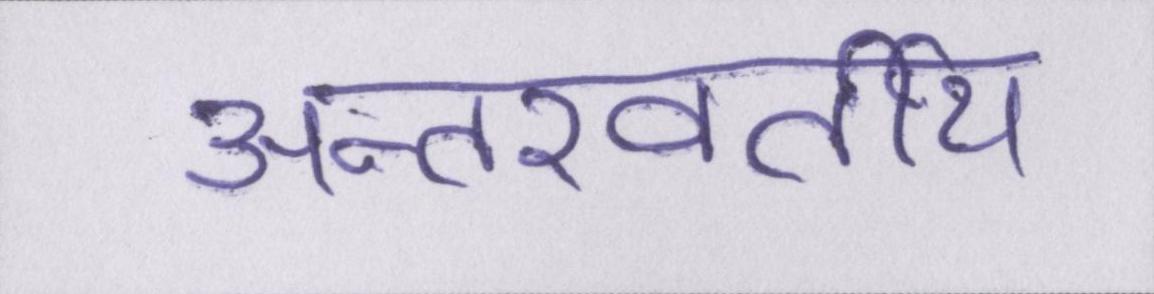 अन्तरवर्तीय